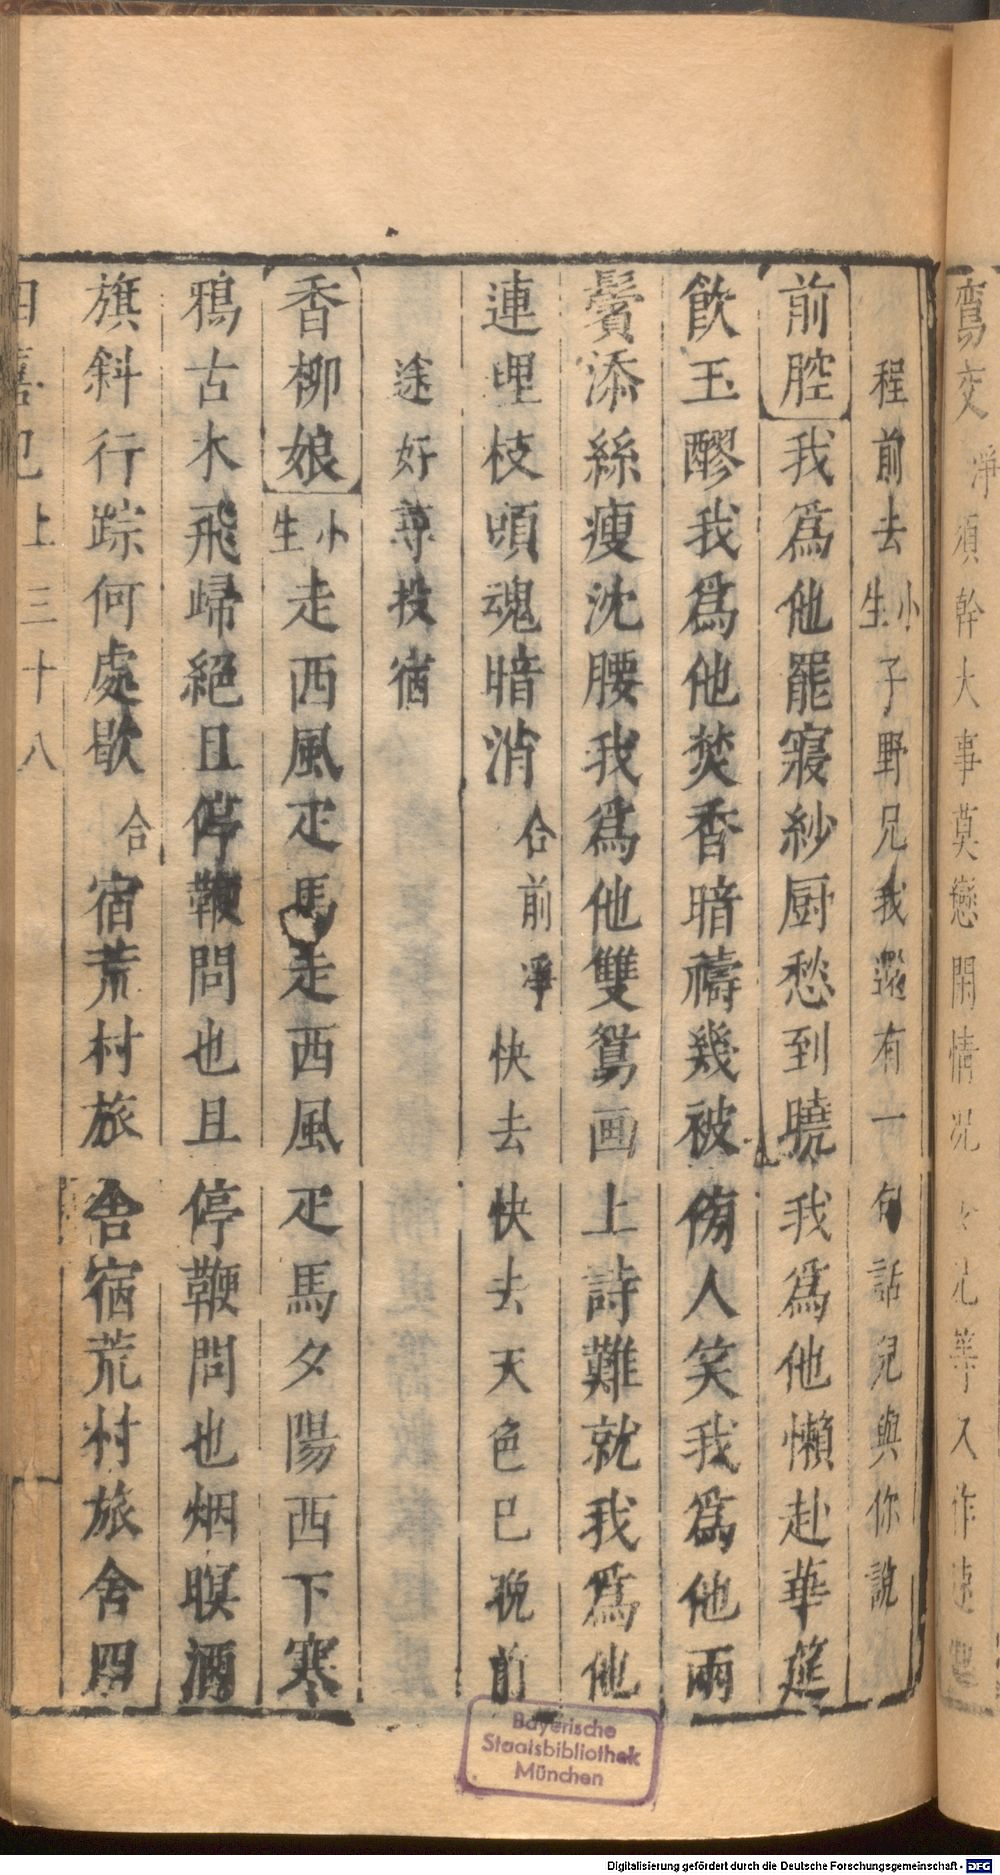 鸞交 淨 須幹大事莫戀閑情況
程前去 小生 子野兄我還有一句話兒與你說
前腔 我爲他罷寢紗厨愁到曉我爲他懶赴華筵
飲玉醪我爲他焚香暗禱幾被傍人笑我爲他兩
鬢添絲瘦沈腰我爲他雙鴛画上詩難就我爲他
連理枝頭魂暗消 合前 淨 快去快去天色已晚前
途好尋投宿
香柳娘 小生 走西風疋馬走西風疋馬夕陽西下寒
鴉古木飛歸絕且停鞭問也且停鞭問也烟暝酒
旗斜行踪何處歇 合 宿荒村旅舍宿荒村旅舍四
四喜記 上 三十八
Bayerische
Staatsbibliothek
München
Digitalisierung gefördert durch die Deutsche Forschungsgemeinschaft - DFG